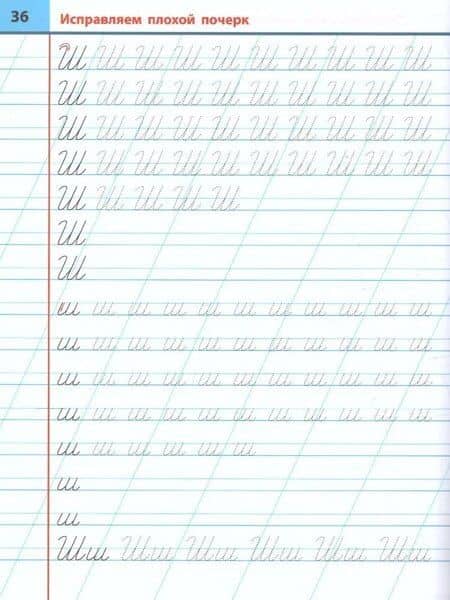 36 Исправляем плохой почерк
Ш Ш Ш Ш Ш Ш Ш Ш Ш Ш
Ш Ш Ш Ш Ш Ш Ш Ш Ш Ш
Ш Ш Ш Ш Ш Ш Ш Ш Ш Ш
Ш Ш Ш Ш Ш Ш Ш Ш Ш Ш
Ш Ш Ш Ш Ш
Ш
Ш
ш ш ш ш ш ш ш ш ш ш ш
ш ш ш ш ш ш ш ш ш ш ш
ш ш ш ш ш ш ш ш ш ш ш
ш ш ш ш ш ш ш ш ш ш ш
ш ш ш ш ш ш
ш
ш
Шш Шш Шш Шш Шш Шш